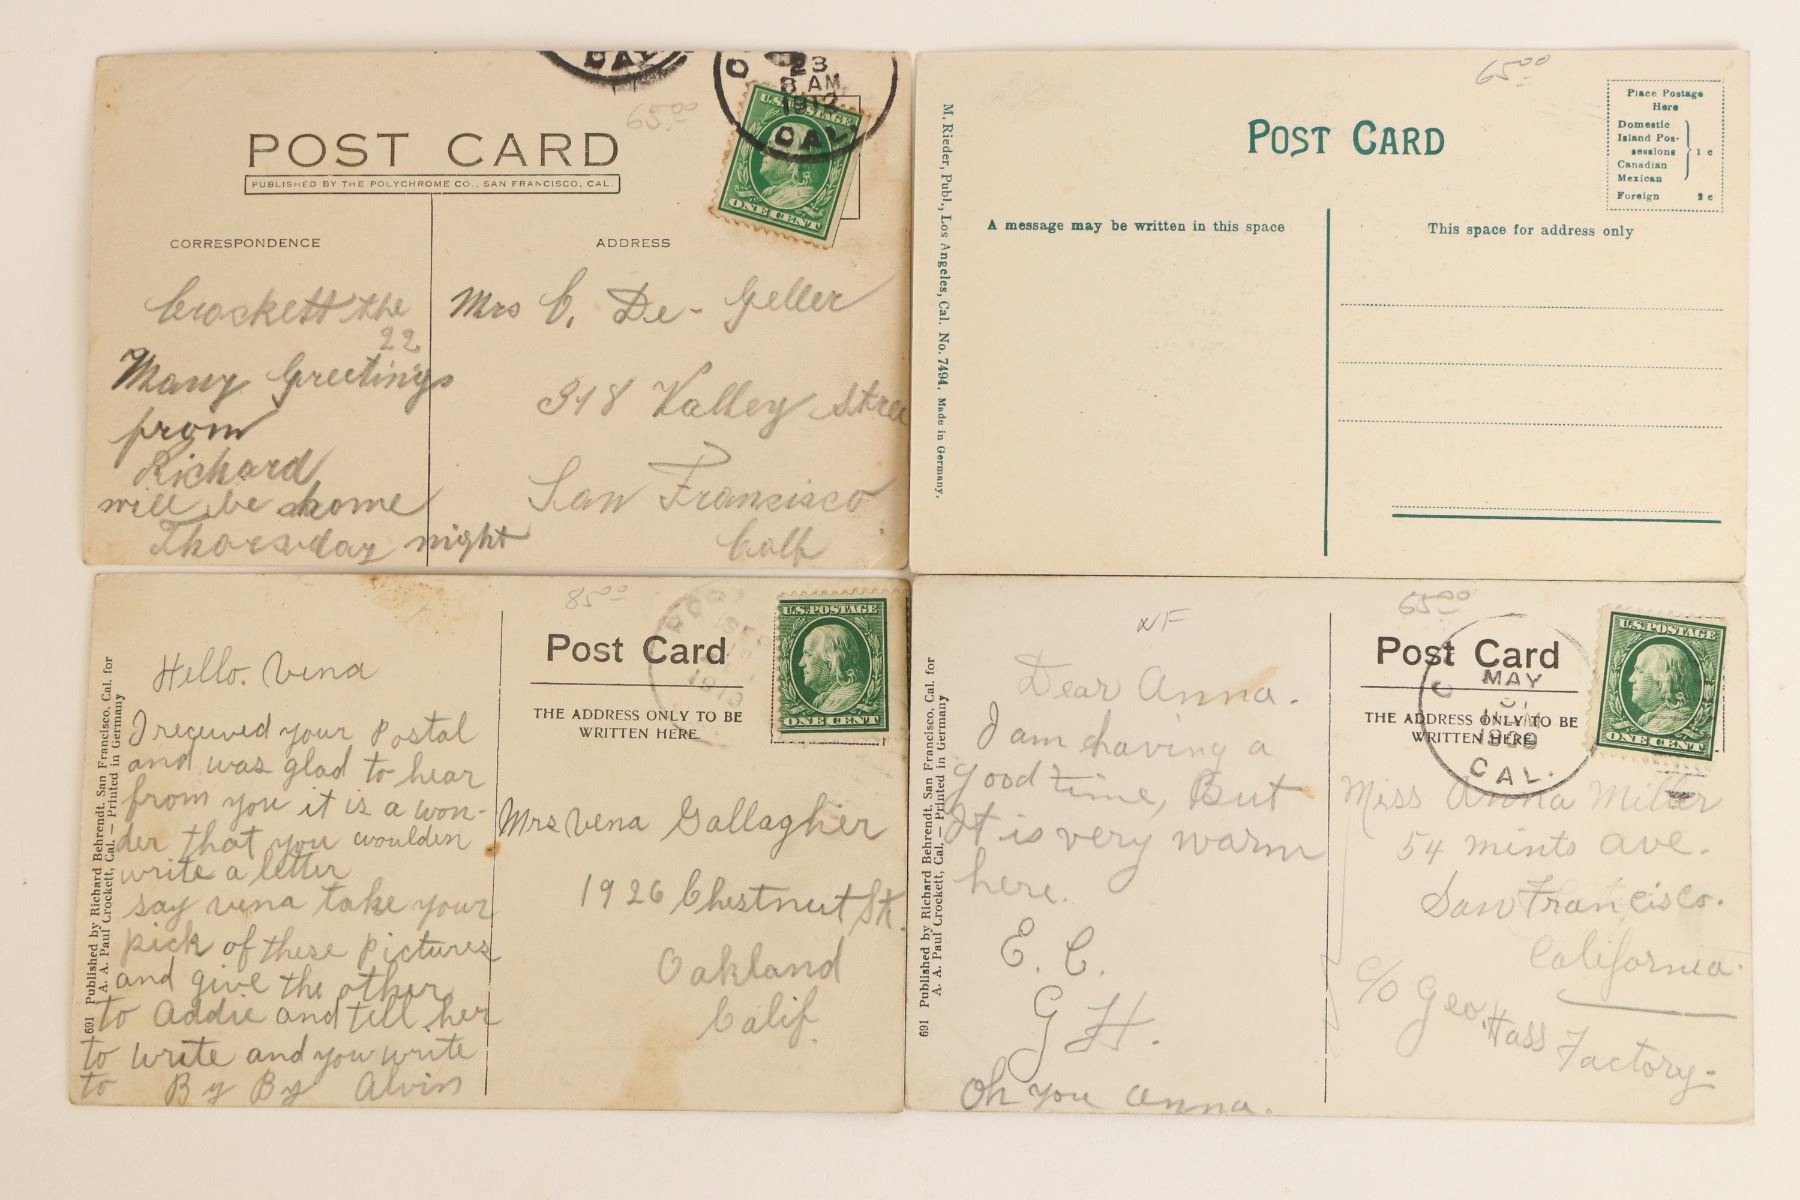 CAL
23
8 AM
1912
CAL.
65.00
U.S. POSTAGE
ONE CENT
POST CARD
PUBLISHED BY THE POLYCHROME CO., SAN FRANCISCO, CAL.
CORRESPONDENCE
ADDRESS
Crockett the
22
Many Greetings
from
Richard
will be home
Thorsday night
Mrs C. De-Geller
318 Valley Stree
San Francisco
Calf
65.00
POST CARD
Place Postage
Here
Domestic
Island Pos-
sessions
Canadian
Mexican
1 c
Foreign 2 c
A message may be written in this space
This space for address only
M. Rieder, Publ., Los Angeles, Cal. No. 7494. Made in Germany.
85.00
Post Card
1910
U.S. POSTAGE
ONE CENT
THE ADDRESS ONLY TO BE
WRITTEN HERE
691 Published by Richard Behrendt, San Francisco, Cal. for
A. A. Paul Crockett, Cal. — Printed in Germany
Hello. Vena
I recieved your Postal
and was glad to hear
from you it is a won-
der that you woulden
write a letter
say vena take your
pick of these pictures
and give the other
to Addie and tell her
to write and you write
to By By Alvin
Mrs Vena Gallagher
1926 Chestnut St.
Oakland
Calif.
65.00
NF
Post Card
MAY
CAL.
U.S. POSTAGE
ONE CENT
THE ADDRESS ONLY TO BE
WRITTEN HERE
691 Published by Richard Behrendt, San Francisco, Cal. for
A. A. Paul Crockett, Cal. — Printed in Germany
Dear Anna.
I am having a
good time, But
It is very warm
here.
E. C.
G H.
Oh you Anna.
Miss Anna Miller
54 mints ave.
San Francisco.
California.
C/O Geo. Hass
Factory.